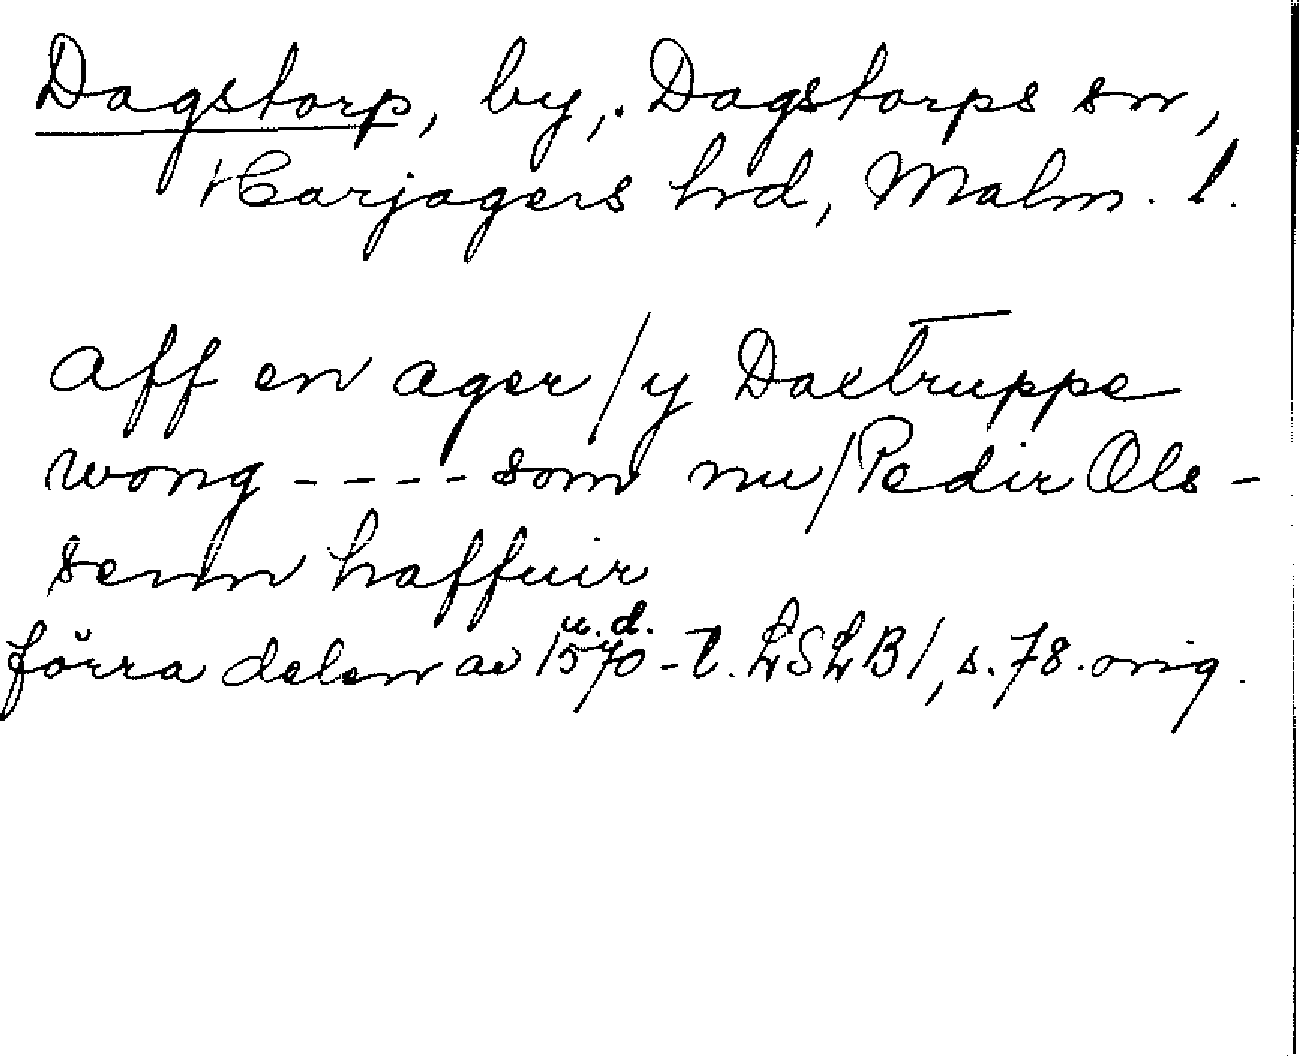 Dagstorp, by, Dagstorps sn,
Harjagers hd, Malm. l.
aff en ager / y Daxtruppe
wong ---- som nu / Pedir Ols-
senn haffuir
u. d.
förra delen av 1570-t. LSLB1, s. 78. orig.